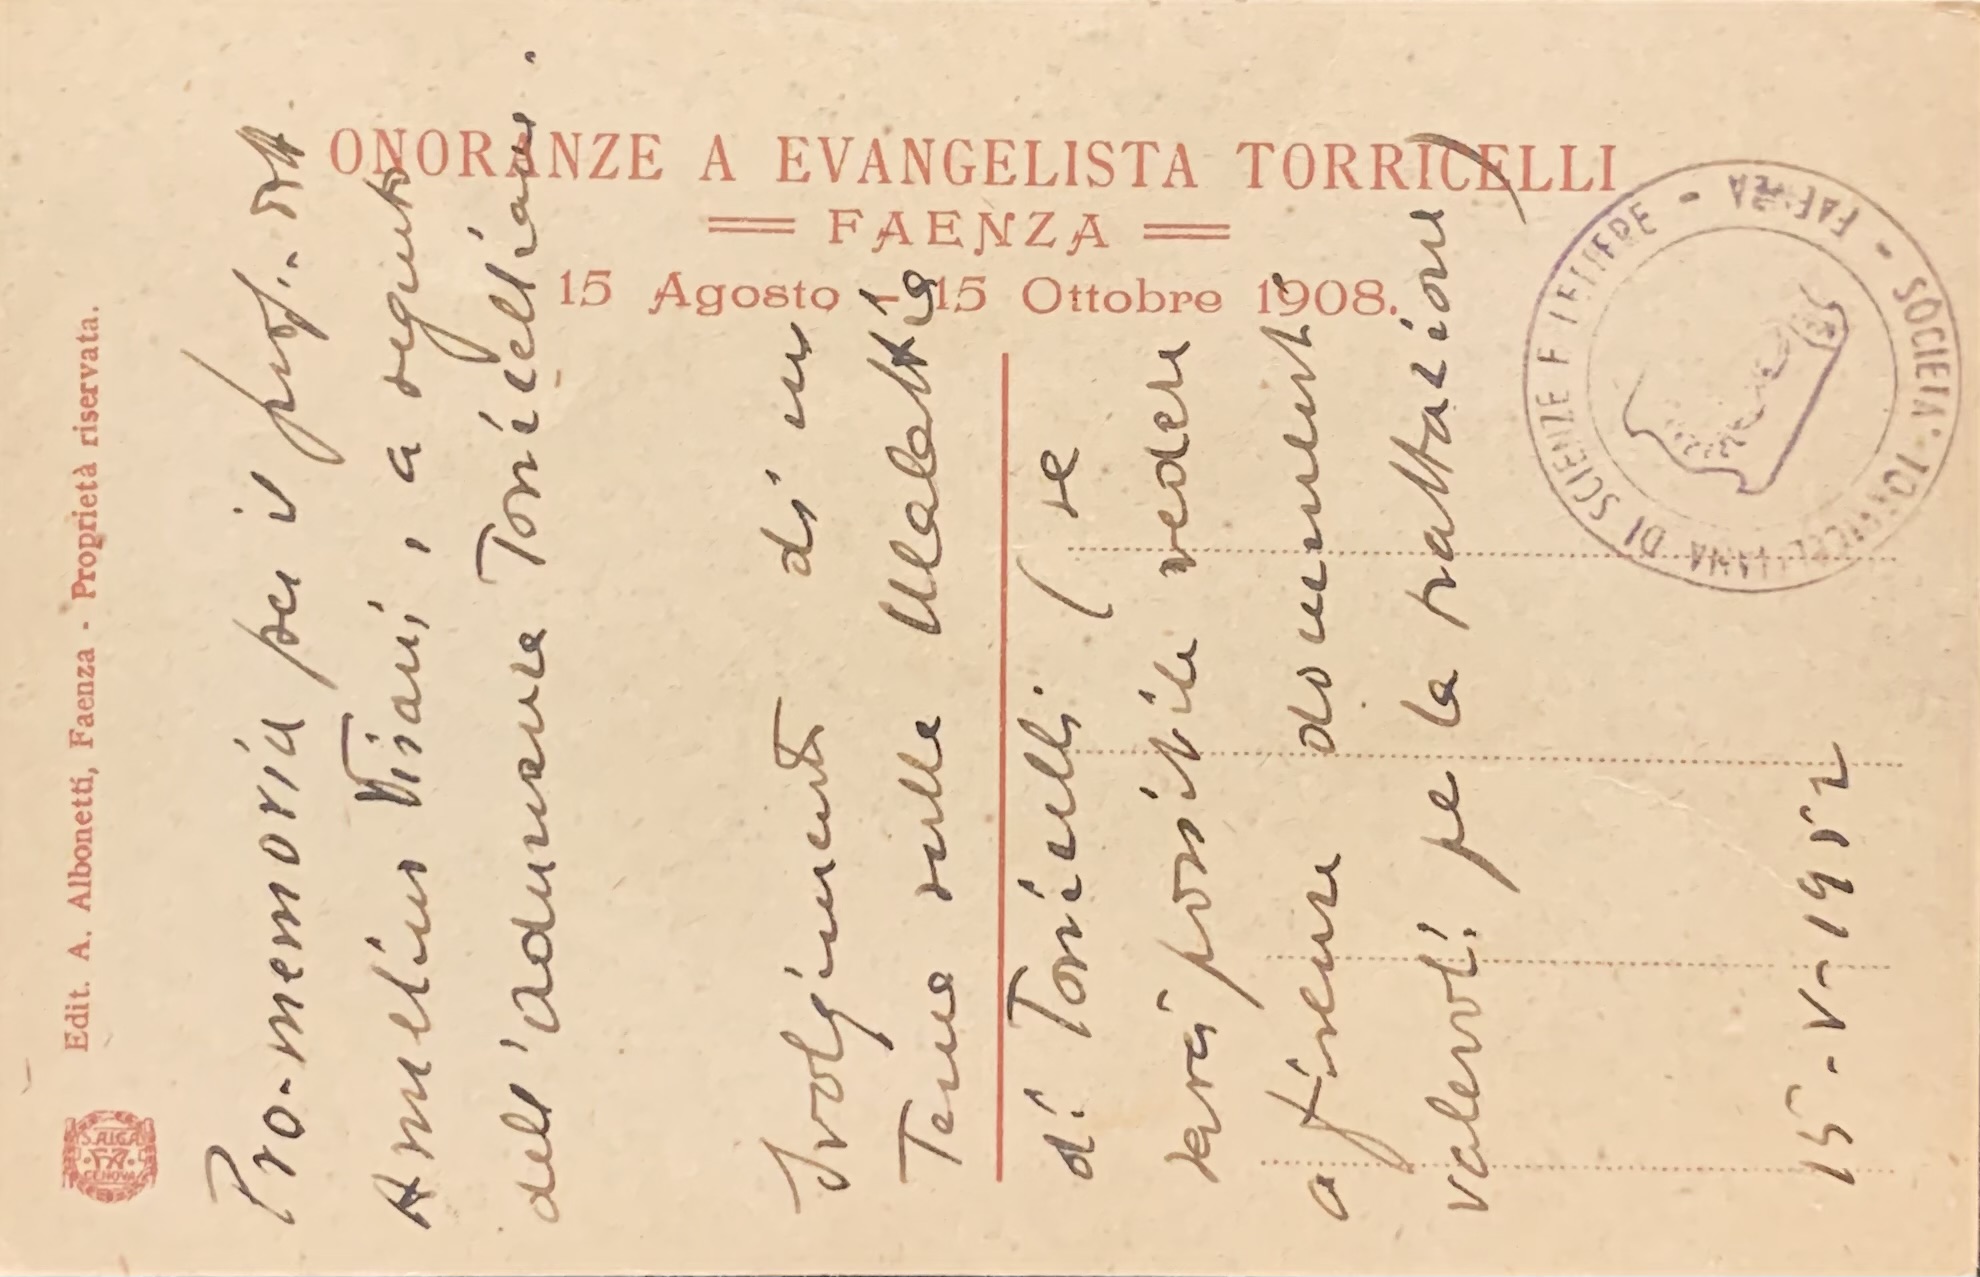 ONORANZE A EVANGELISTA TORRICELLI
FAENZA
15 Agosto - 15 Ottobre 1908.
Edit. A. Albonetti, Faenza - Proprietà riservata.
S. AIGA
GENOVA
SOCIETA' TORRICELLIANA DI SCIENZE E LETTERE - FAENZA -
Pro-memoria per il prof. dott.
Amellino Visani, a seguito
dell'adunanza Torricelliana.
Svolgimento di un
Tema sulla Malattia
di Torricelli. (se
sarà possibile vedere
a Firenze documenti
valevoli pe la trattazione)
15-V-1952